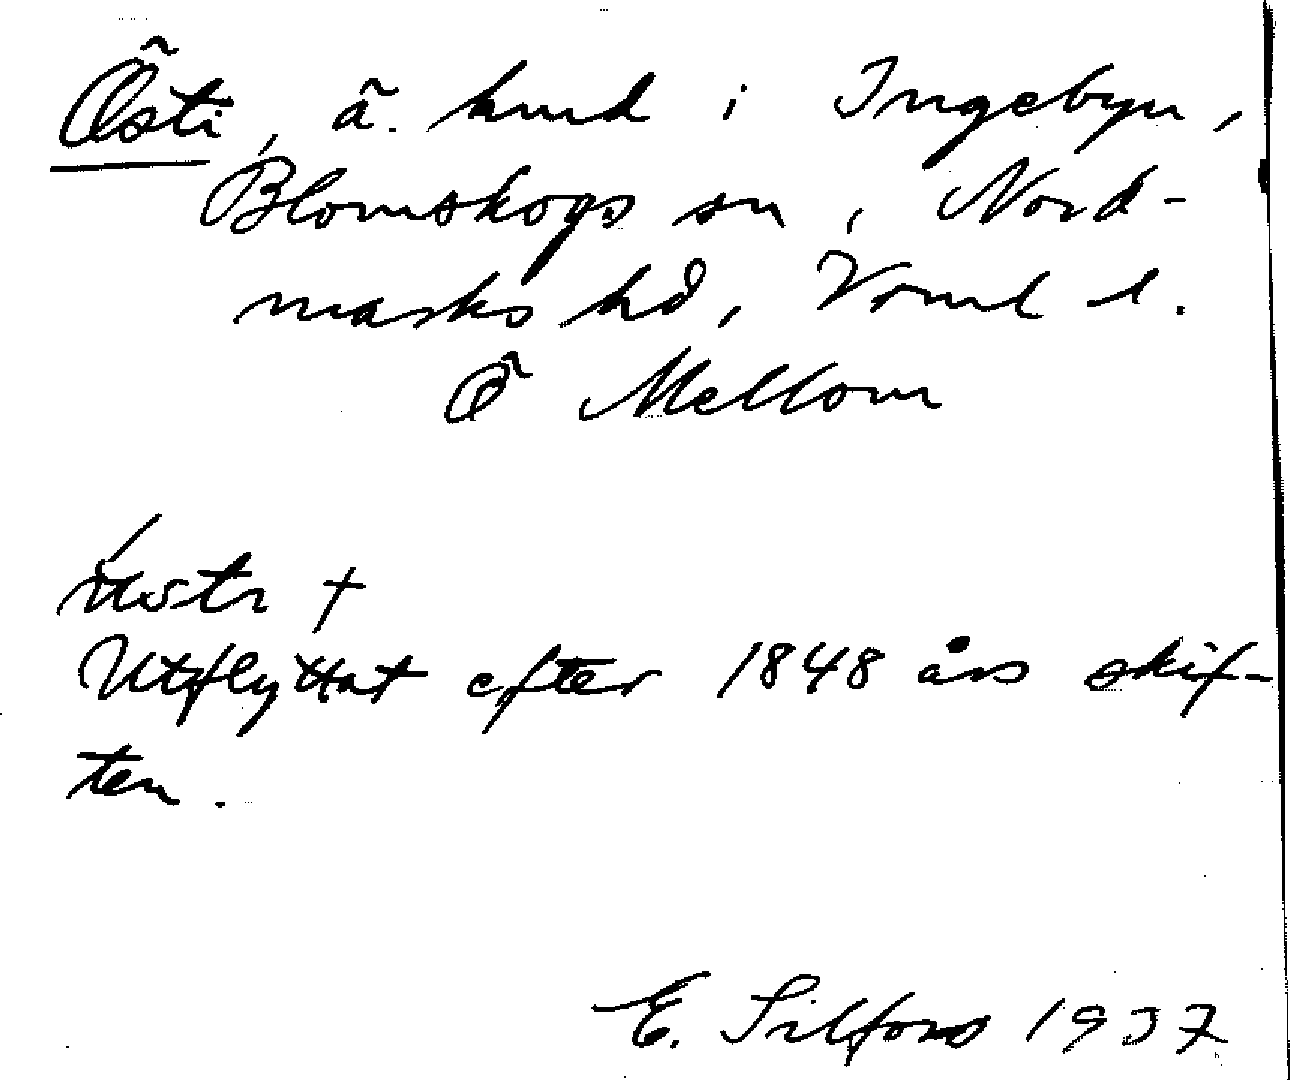 Östi, ä. hmd i Ingebyn,
Blomskogs sn, Nord-
marks hd, Vrml l.
Ö Mellom
östr †
Utflyttat efter 1848 års skif-
ten.
E. Silfors 1937